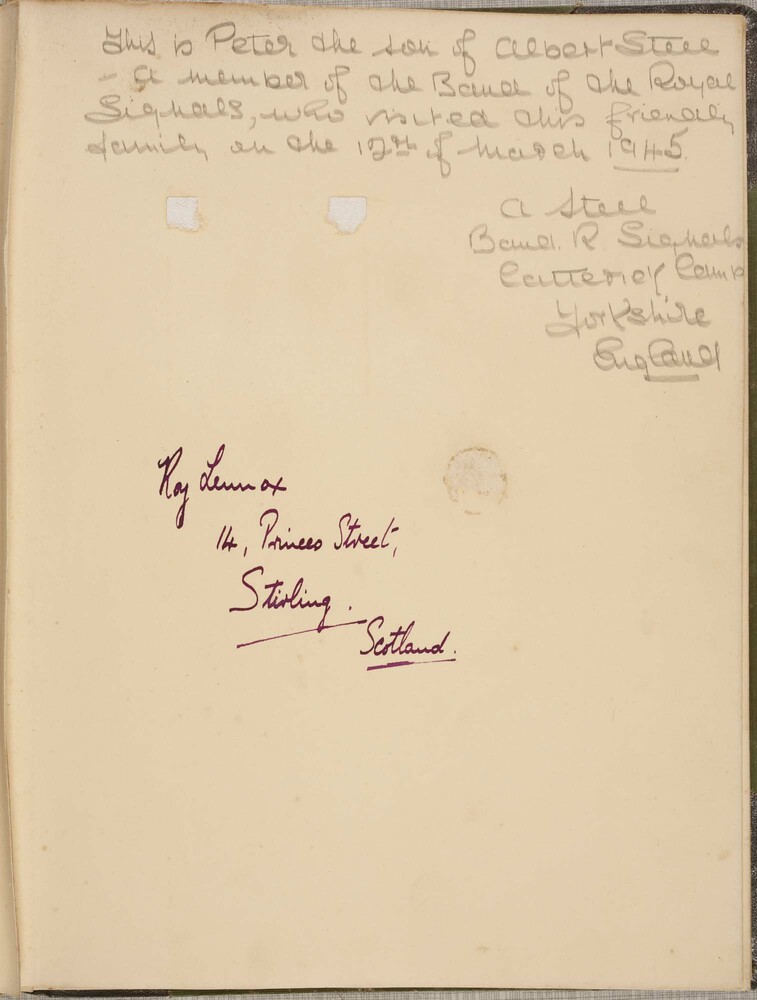 This is Peter the son of Albert Steel
- a member of the Band of the Royal
Signals, who visited this friendly
family on the 12th of March 1945.
A Steel
Band. R. Signals
Catterick Camp
Yorkshire
England
Roy Lennox
14, Princes Street,
Stirling.
Scotland.